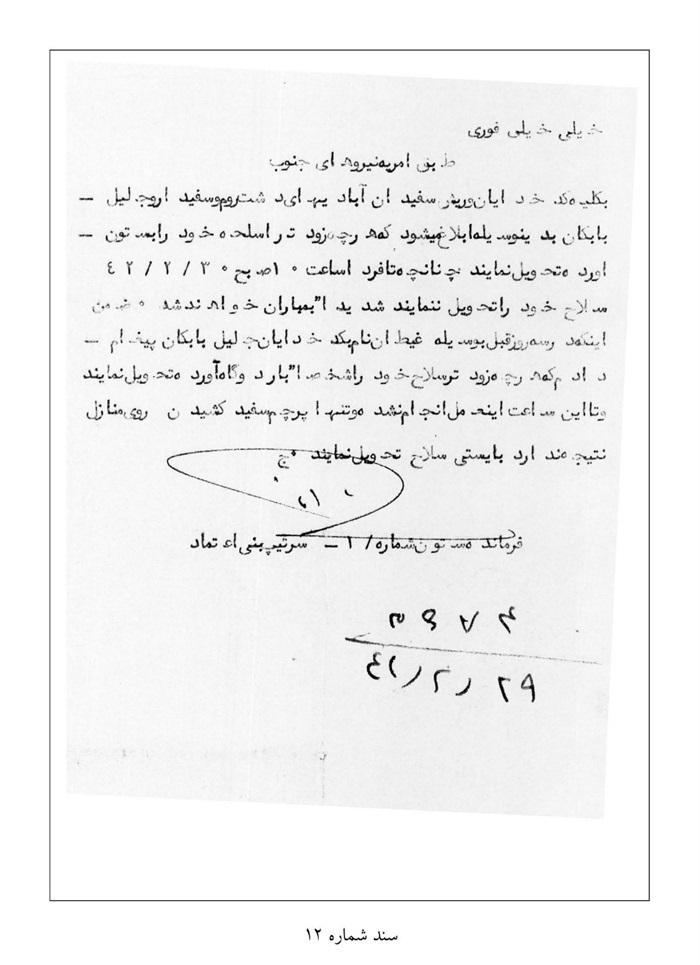 خیلی خیلی فوری
طبق امریه نیروهای جنوب
بکلیه کدخدایان وریش سفیدان آبادیهای دشت روم وسفیدار وجلیل –
بابکان بدینوسیله ابلاغ میشود که هرچه زودتر اسلحه خود رابستون –
اورده تحویل نمایند چنانچه تافردا ساعت ۱۰ صبح ۴۲/۲/۳۰
سلاح خود راتحویل ننمایند شدیدا" بمباران خواهند شد . ضمن
اینکه در سه روزقبل بوسیله غیطان نام بکدخدایان جلیل بابکان پیغام –
دادم که هرچه زودترسلاح خود راشخصا" باردوگاه آورده تحویل نمایند
وتااین ساعت اینعمل انجام نشده وتنها پرچم سفید کشیدن روی منازل
نتیجه ندارد بایستی سلاح تحویل نمایند . ج
فرمانده ستون شماره /۱ – سرتیپ بنی اعتماد
۲۹ /۲/
سند شماره ۱۲